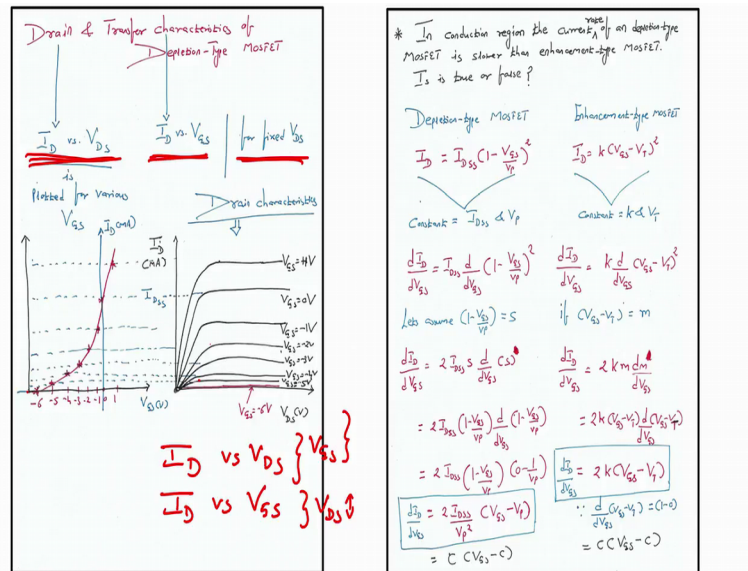 Drain & Transfer characteristics of
Depletion-Type MOSFET
I_D vs. V_DS
is
Plotted for various
V_GS
I_D vs. V_GS | for fixed V_DS
Drain characteristics
I_D(mA)
I_D
(mA)
I_DSS
V_GS=+1V
V_GS=0V
V_GS=-1V
V_GS=-2V
V_GS=-3V
V_GS=-4V
V_GS=-5V
V_GS=-6V
V_DS(V)
-6 -5 -4 -3 -2 -1 0 1
V_GS(V)
I_D vs V_DS } V_GS }
I_D vs V_GS } V_DS
* In conduction region the current rate of an depletion-type
MOSFET is slower than enhancement-type MOSFET.
Is is true or false?
Depletion-type MOSFET
I_D = I_DSS (1-V_GS/V_P)^2
Constant = I_DSS & V_P
dI_D/dV_GS = I_DSS d/dV_GS (1-V_GS/V_P)^2
Lets assume (1-V_GS/V_P) = S
dI_D/dV_GS = 2 I_DSS S d/dV_GS (S)
= 2 I_DSS (1-V_GS/V_P) d/dV_GS (1-V_GS/V_P)
= 2 I_DSS (1-V_GS/V_P) (0-1/V_P)
dI_D/dV_GS = 2 I_DSS/V_P^2 (V_GS-V_P)
= C (V_GS-C)
Enhancement-type MOSFET
I_D = k(V_GS-V_T)^2
Constant = k & V_T
dI_D/dV_GS = k d/dV_GS (V_GS-V_T)^2
if (V_GS-V_T) = m
dI_D/dV_GS = 2 k m dm/dV_GS
= 2k (V_GS-V_T) d/dV_GS (V_GS-V_T)
dI_D/dV_GS = 2k (V_GS-V_T)
∵ d/dV_GS (V_GS-V_T) = (1-0)
= C (V_GS-C)